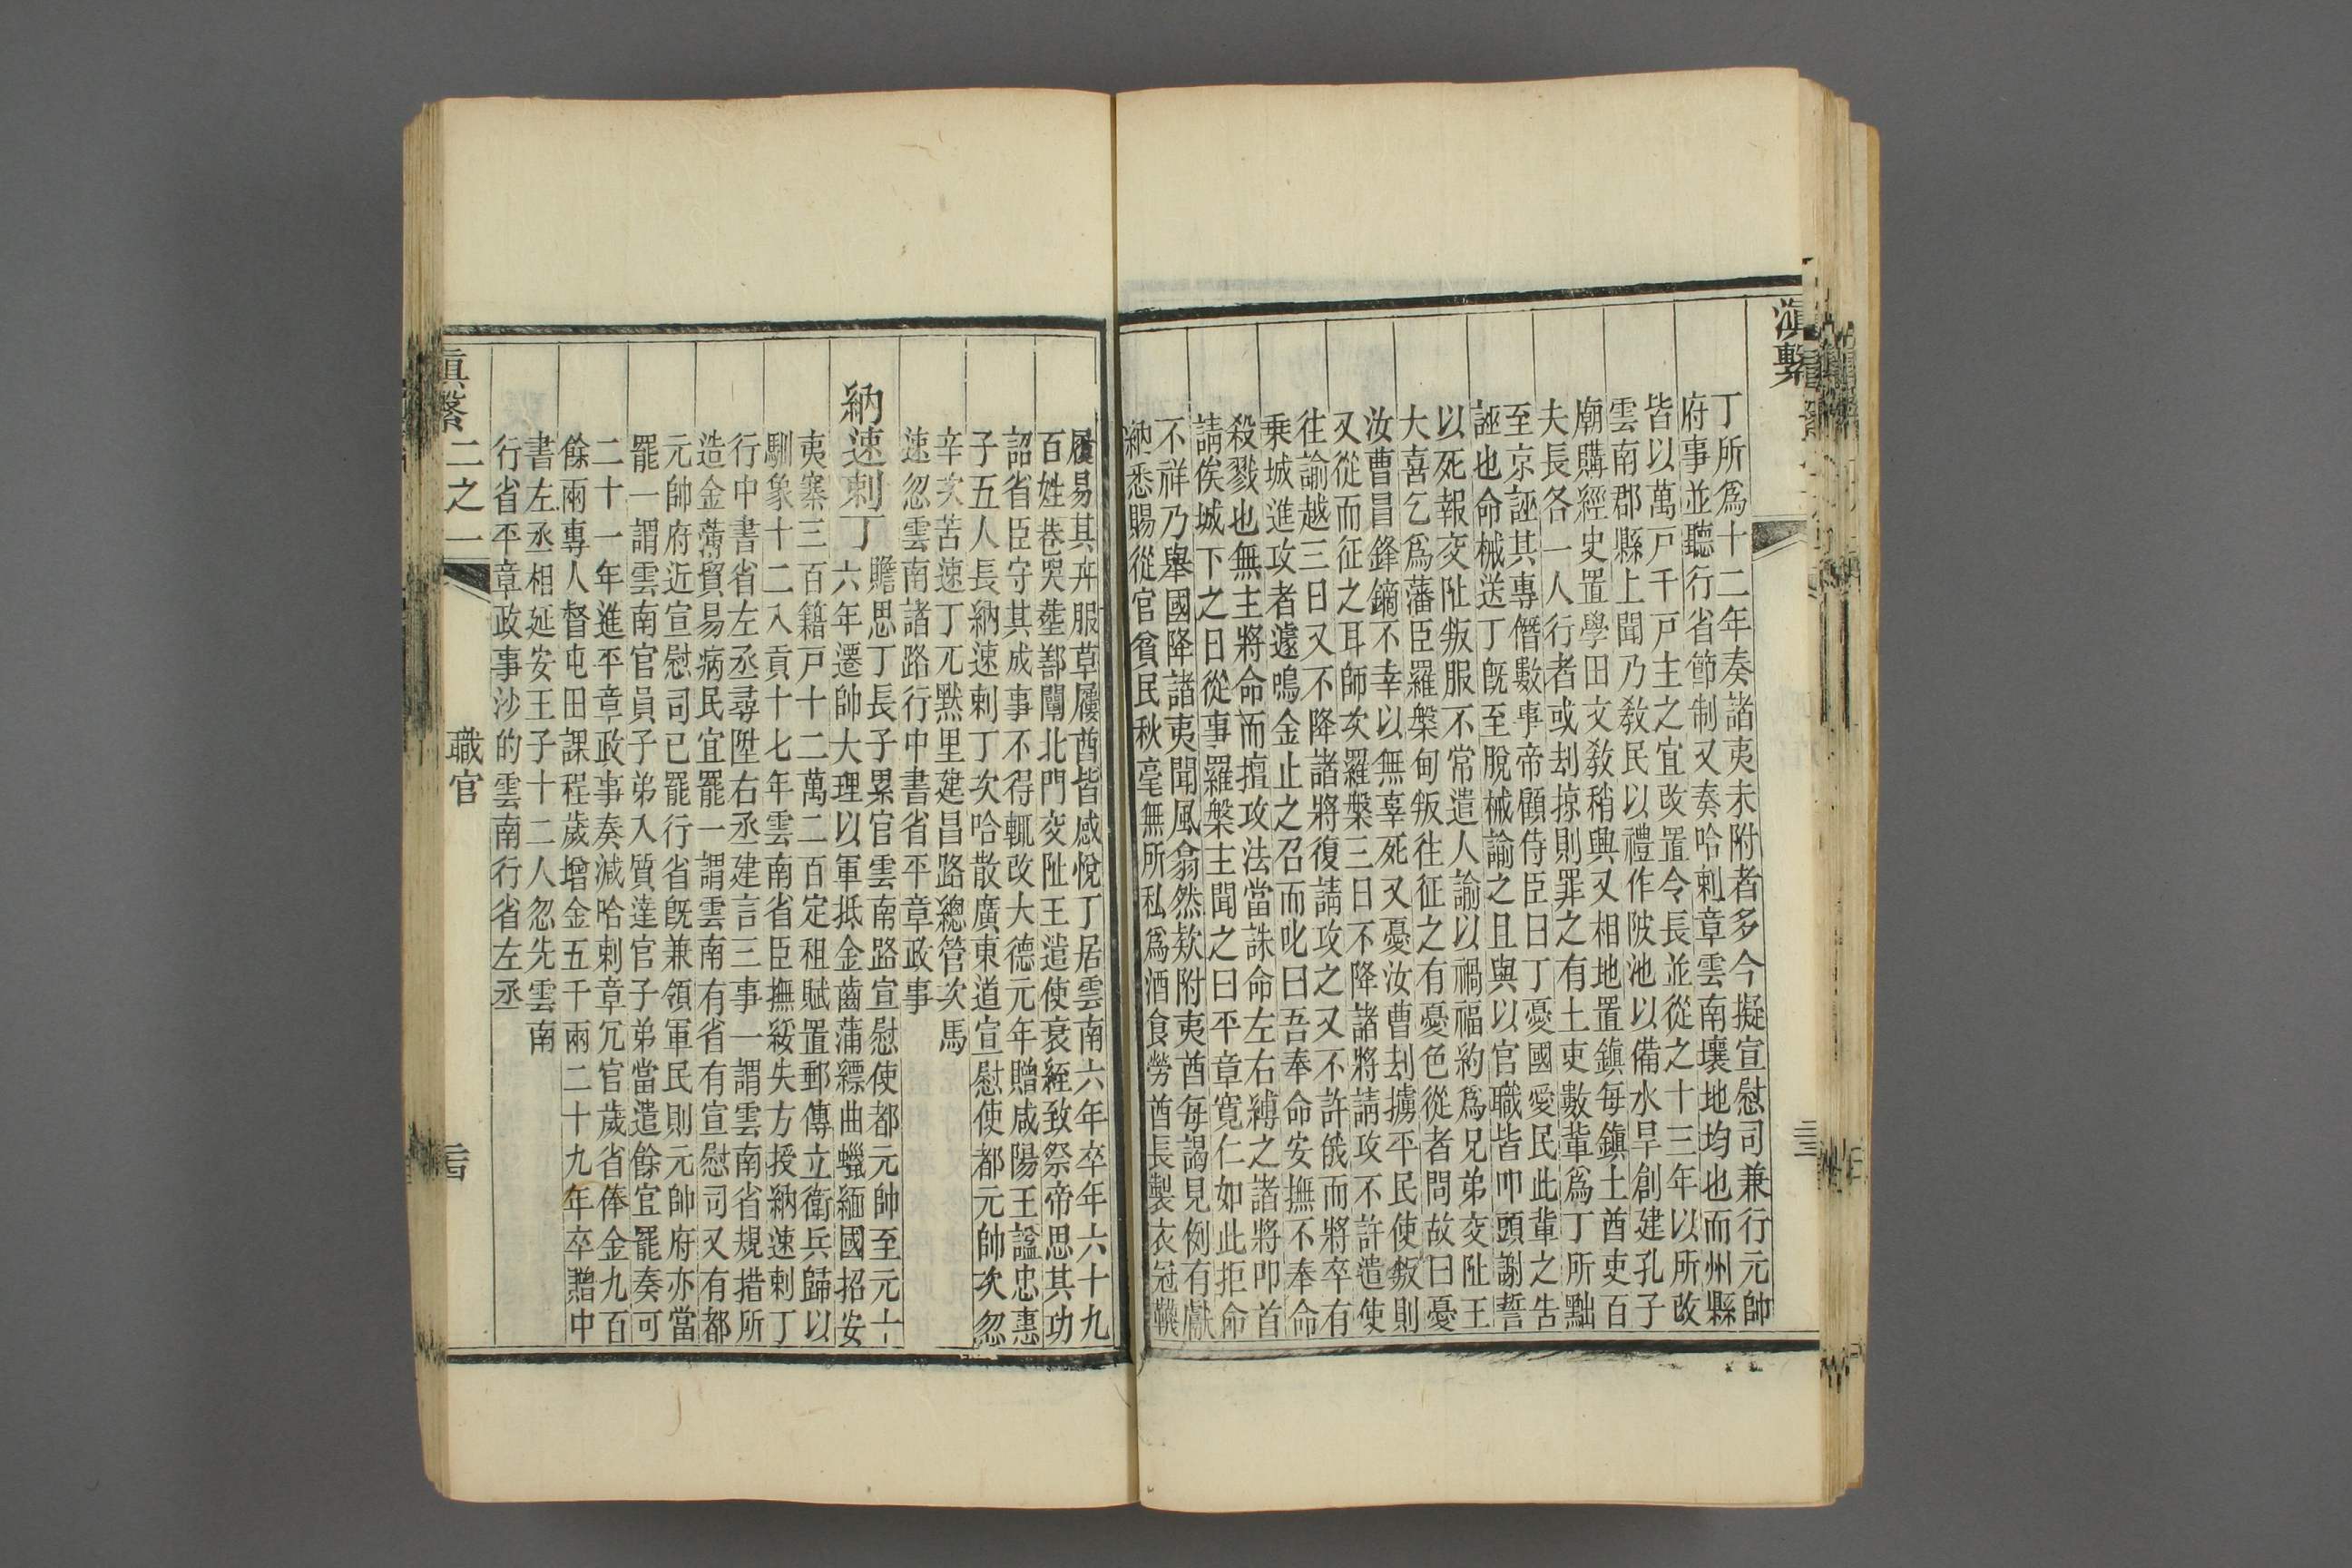 滇繫
丁所爲十二年奏諸夷未附者多今擬宣慰司兼行元帥
府事並聽行省節制又奏哈剌章雲南壤地均也而州縣
皆以萬戸千戸主之宜改置令長並從之十三年以所改
雲南郡縣上聞乃敎民以禮作陂池以備水旱創建孔子
廟購經史置學田文敎稍興又相地置鎮每鎮土酋吏百
夫長各一人行者或刦掠則罪之有土吏數輩爲丁所黜
至京誣其專僭數事帝顧侍臣曰丁憂國愛民此輩之吿
誣也命械送丁旣至脫械諭之且與以官職皆叩頭謝誓
以死報交阯叛服不常遣人諭以禍福約爲兄弟交阯王
大喜乞爲藩臣羅槃甸叛往征之有憂色從者問故曰憂
汝曹昌鋒鏑不幸以無辜死又憂汝曹刦擄平民使叛則
又從而征之耳師次羅槃三日不降諸將請攻不許遣使
往諭越三日又不降諸將復請攻之又不許俄而將卒有
乘城進攻者遽鳴金止之召而叱曰吾奉命安撫不奉命
殺戮也無主將命而擅攻法當誅命左右縛之諸將叩首
請俟城下之日從事羅槃主聞之曰平章寬仁如此拒命
不祥乃舉國降諸夷聞風翕然欵附夷酋每謁見例有獻
納悉賜從官貧民秋毫無所私爲酒食勞酋長製衣冠韈
履易其卉服草屨酋皆感悅丁居雲南六年卒年六十九
百姓巷哭塟鄯闡北門交阯王遣使衰絰致祭帝思其功
詔省臣守其成事不得輒改大德元年贈咸陽王諡忠惠
子五人長納速剌丁次哈散廣東道宣慰使都元帥次忽
辛次苦速丁兀默里建昌路總管次馬
速忽雲南諸路行中書省平章政事
納速剌丁贍思丁長子累官雲南路宣慰使都元帥至元十
六年遷帥大理以軍抵金齒蒲縹曲蠟緬國招安
夷寨三百籍戸十二萬二百定租賦置郵傳立衛兵歸以
馴象十二入貢十七年雲南省臣撫綏失方授納速剌丁
行中書省左丞尋陞右丞建言三事一謂雲南省規措所
造金薄貿易病民宜罷一謂雲南有省有宣慰司又有都
元帥府近宣慰司已罷行省旣兼領軍民則元帥府亦當
罷一謂雲南官員子弟入質達官子弟當遣餘宜罷奏可
二十一年進平章政事奏減哈剌章冗官歲省俸金九百
餘兩專人督屯田課程歲增金五千兩二十九年卒贈中
書左丞相延安王子十二人忽先雲南
行省平章政事沙的雲南行省左丞
滇繫 二之一 職官